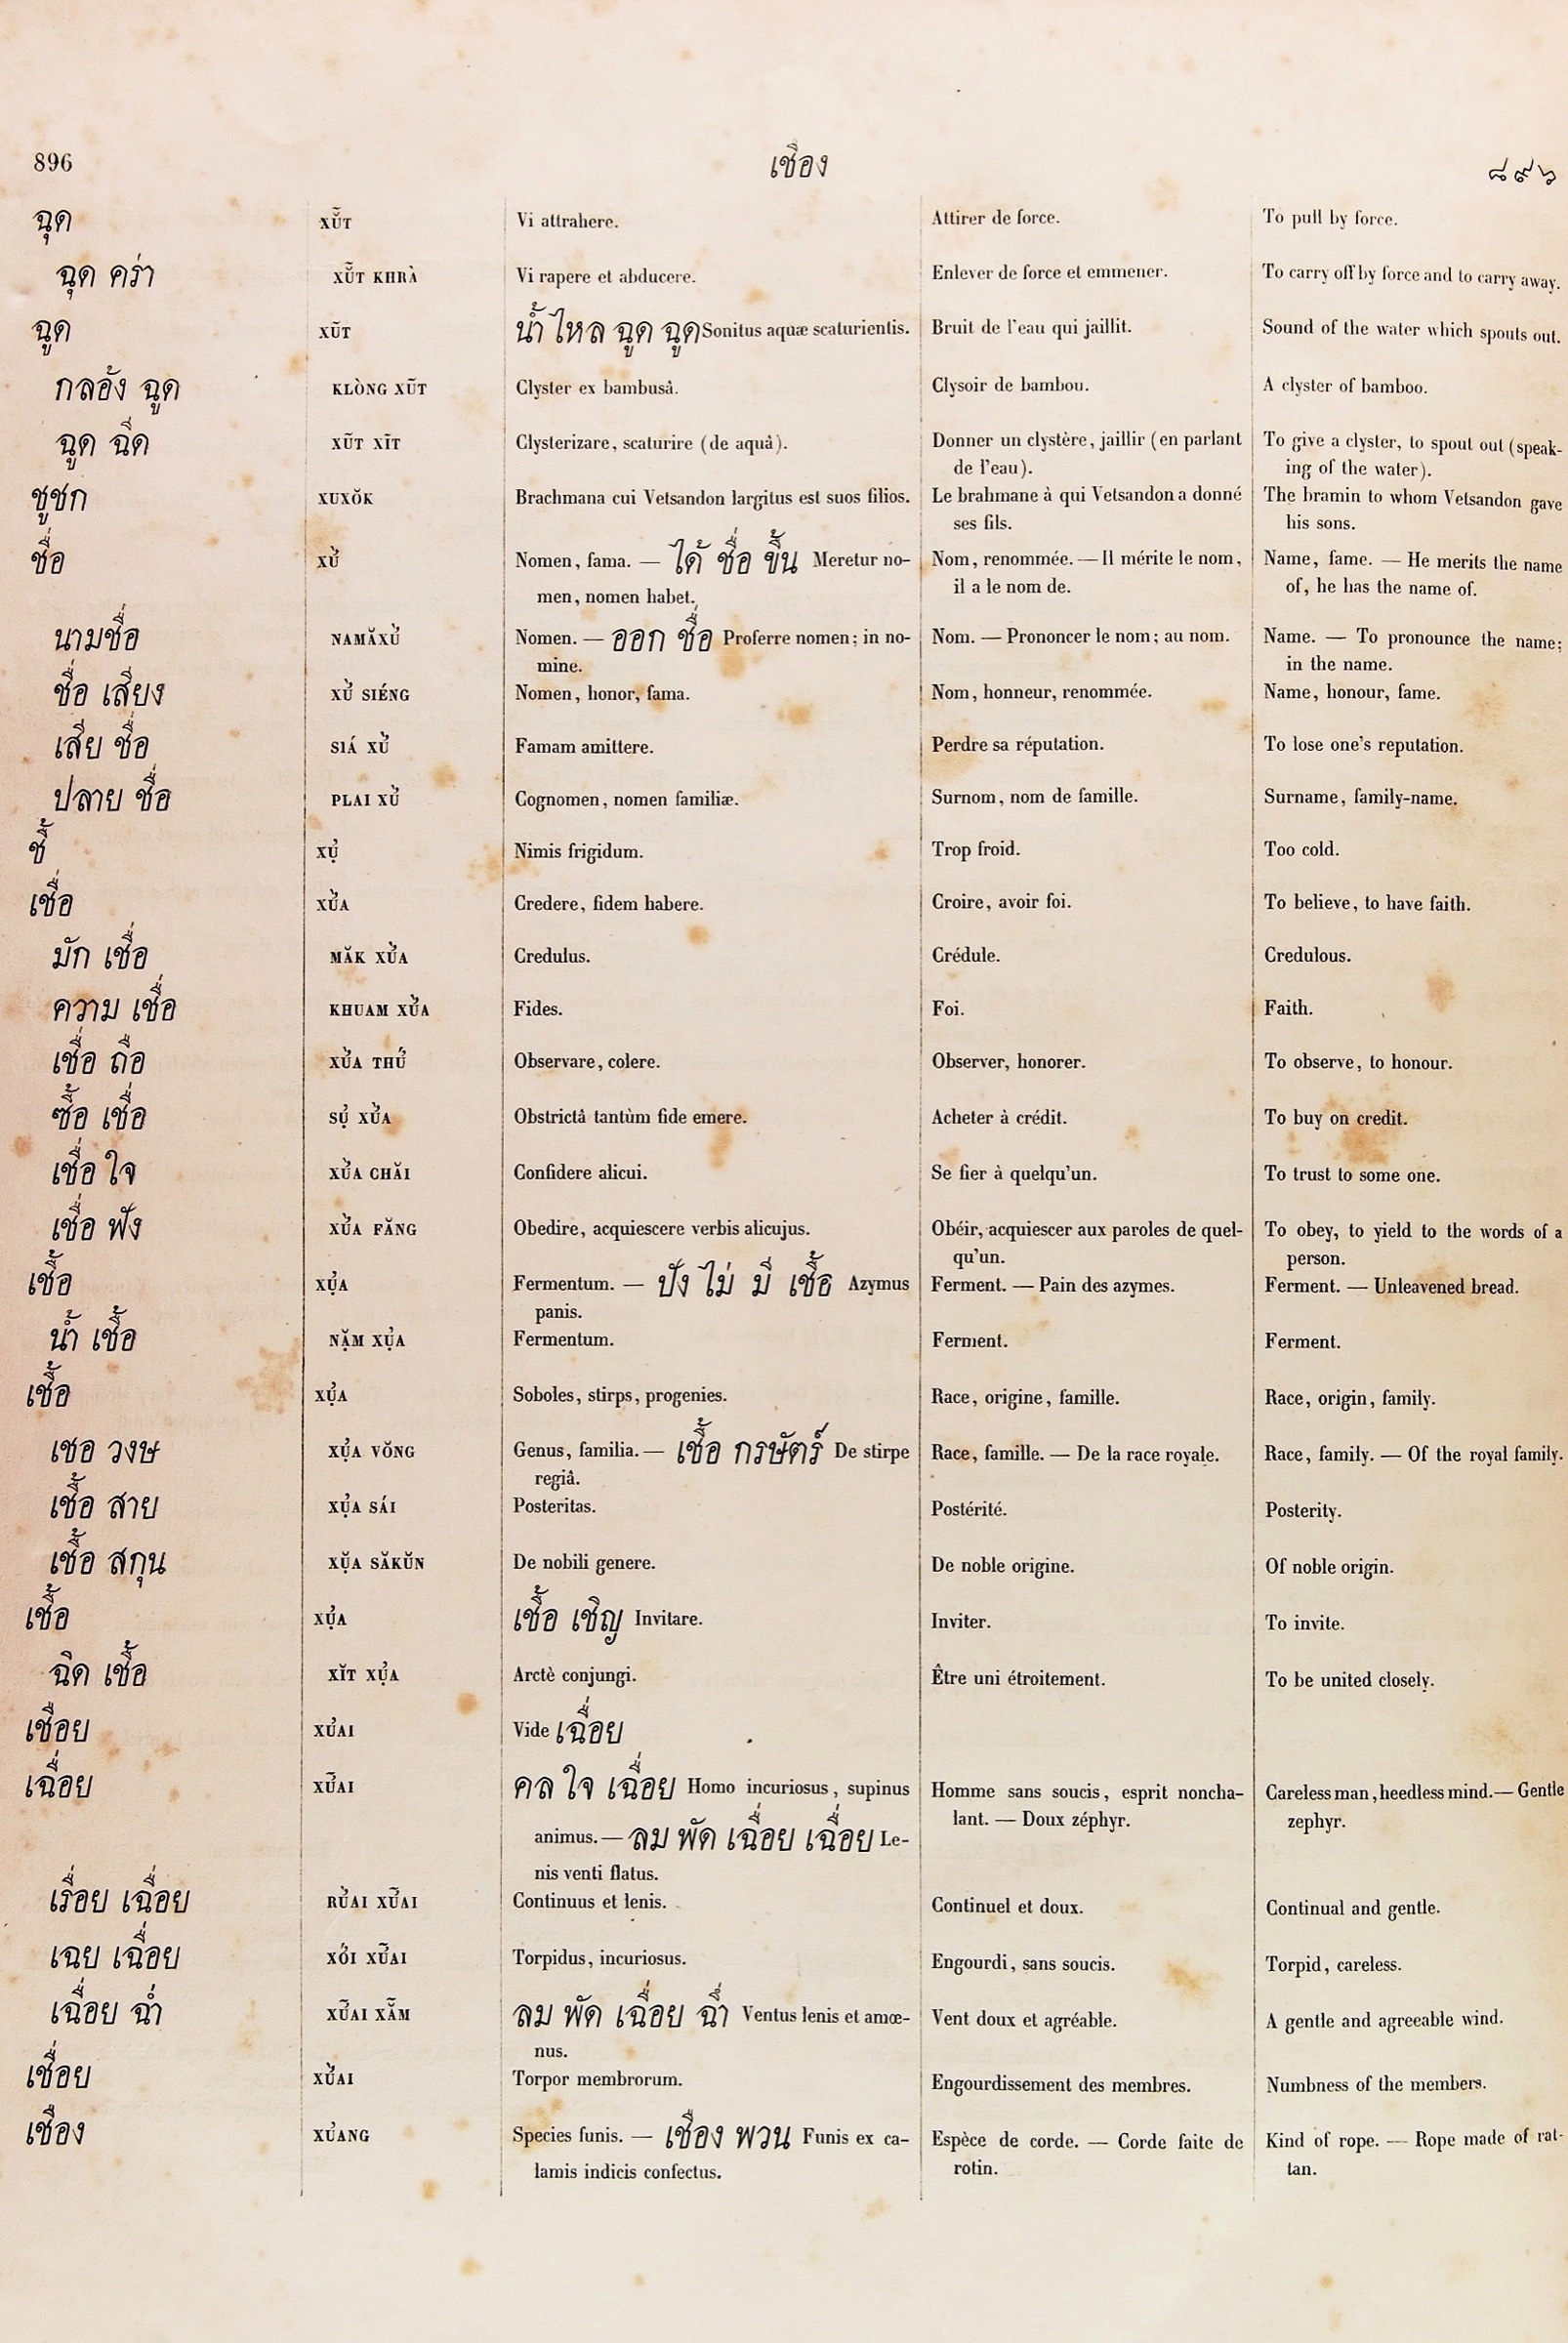 896 เชือง ๘๙๖
ฉุด XŬ̃T Vi attrahere. Attirer de force. To pull by force.
ฉุด คร่า XŬ̃T KHRÀ Vi rapere et abducere. Enlever de force et emmener. To carry off by force and to carry away.
ฉูด XŨT น้ำ ไหล ฉูด ฉูด Sonitus aquæ scaturientis. Bruit de l'eau qui jaillit. Sound of the water which spouts out.
กลอ้ง ฉูด KLÒNG XŨT Clyster ex bambusâ. Clysoir de bambou. A clyster of bamboo.
ฉูด ฉีด XŨT XĨT Clysterizare, scaturire (de aquâ). Donner un clystère, jaillir (en parlant To give a clyster, to spout out (speak-
de l'eau). ing of the water).
ชูชก XUXŎK Brachmana cui Vetsandon largitus est suos filios. Le brahmane à qui Vetsandon a donné The bramin to whom Vetsandon gave
ses fils. his sons.
ชื่อ XU̓̀ Nomen, fama. — ได้ ชื่อ ขึ้น Meretur no- Nom, renommée. — Il mérite le nom, Name, fame. — He merits the name
men, nomen habet. il a le nom de. of, he has the name of.
นามชื่อ NAMĂXU̓̀ Nomen. — ออก ชื่อ Proferre nomen; in no- Nom. — Prononcer le nom; au nom. Name. — To pronounce the name;
mine. in the name.
ชื่อ เสียง XU̓̀ SIÉNG Nomen, honor, fama. Nom, honneur, renommée. Name, honour, fame.
เสีย ชื่อ SIÁ XU̓̀ Famam amittere. Perdre sa réputation. To lose one's reputation.
ปลาย ชื่อ PLAI XU̓̀ Cognomen, nomen familiæ. Surnom, nom de famille. Surname, family-name.
ชื้ XỤ̓ Nimis frigidum. Trop froid. Too cold.
เชื่อ XU̓̀A Credere, fidem habere. Croire, avoir foi. To believe, to have faith.
มัก เชื่อ MĂK XU̓̀A Credulus. Crédule. Credulous.
ความ เชื่อ KHUAM XU̓̀A Fides. Foi. Faith.
เชื่อ ถือ XU̓̀A THU̓́ Observare, colere. Observer, honorer. To observe, to honour.
ซื้อ เชื่อ SỤ̓ XU̓̀A Obstrictâ tantùm fide emere. Acheter à crédit. To buy on credit.
เชื่อ ใจ XU̓̀A CHĂI Confidere alicui. Se fier à quelqu'un. To trust to some one.
เชื่อ ฟัง XU̓̀A FĂNG Obedire, acquiescere verbis alicujus. Obéir, acquiescer aux paroles de quel- To obey, to yield to the words of a
qu'un. person.
เชื้อ XỤ̓A Fermentum. — ปัง ไม่ มี เชื้อ Azymus Ferment. — Pain des azymes. Ferment. — Unleavened bread.
panis.
น้ำ เชื้อ NẶM XỤ̓A Fermentum. Ferment. Ferment.
เชื้อ XỤ̓A Soboles, stirps, progenies. Race, origine, famille. Race, origin, family.
เชอ วงษ XỤ̓A VŎNG Genus, familia. — เชื้อ กรษัตร์ De stirpe Race, famille. — De la race royale. Race, family. — Of the royal family.
regiâ.
เชื้อ สาย XỤ̓A SÁI Posteritas. Postérité. Posterity.
เชื้อ สกุน XỤ̆A SĂKŬN De nobili genere. De noble origine. Of noble origin.
เชื้อ XỤ̓A เชื้อ เชิญ Invitare. Inviter. To invite.
ฉิด เชื้อ XĬT XỤ̓A Arctè conjungi. Être uni étroitement. To be united closely.
เชือย XU̓AI Vide เฉื่อย
เฉื่อย XU̓̃AI คล ใจ เฉื่อย Homo incuriosus, supinus Homme sans soucis, esprit noncha- Careless man, heedless mind. — Gentle
animus. — ลม พัด เฉื่อย เฉื่อย Le- lant. — Doux zéphyr. zephyr.
nis venti flatus.
เรื่อย เฉื่อย RU̓̀AI XU̓̃AI Continuus et lenis. Continuel et doux. Continual and gentle.
เฉย เฉื่อย XO̓́I XU̓̃AI Torpidus, incuriosus. Engourdi, sans soucis. Torpid, careless.
เฉื่อย ฉ่ำ XU̓̃AI XẴM ลม พัด เฉื่อย ฉ่ำ Ventus lenis et amœ- Vent doux et agréable. A gentle and agreeable wind.
nus.
เชื่อย XU̓̀AI Torpor membrorum. Engourdissement des membres. Numbness of the members.
เชือง XU̓ANG Species funis. — เชือง พวน Funis ex ca- Espèce de corde. — Corde faite de Kind of rope. — Rope made of rat-
lamis indicis confectus. rotin. tan.